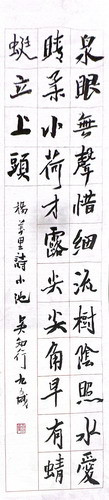 泉眼無聲惜細流樹陰照水愛
晴柔小荷才露尖尖角早有蜻
蜓立上頭
楊萬里詩小池 吳知行 九歲